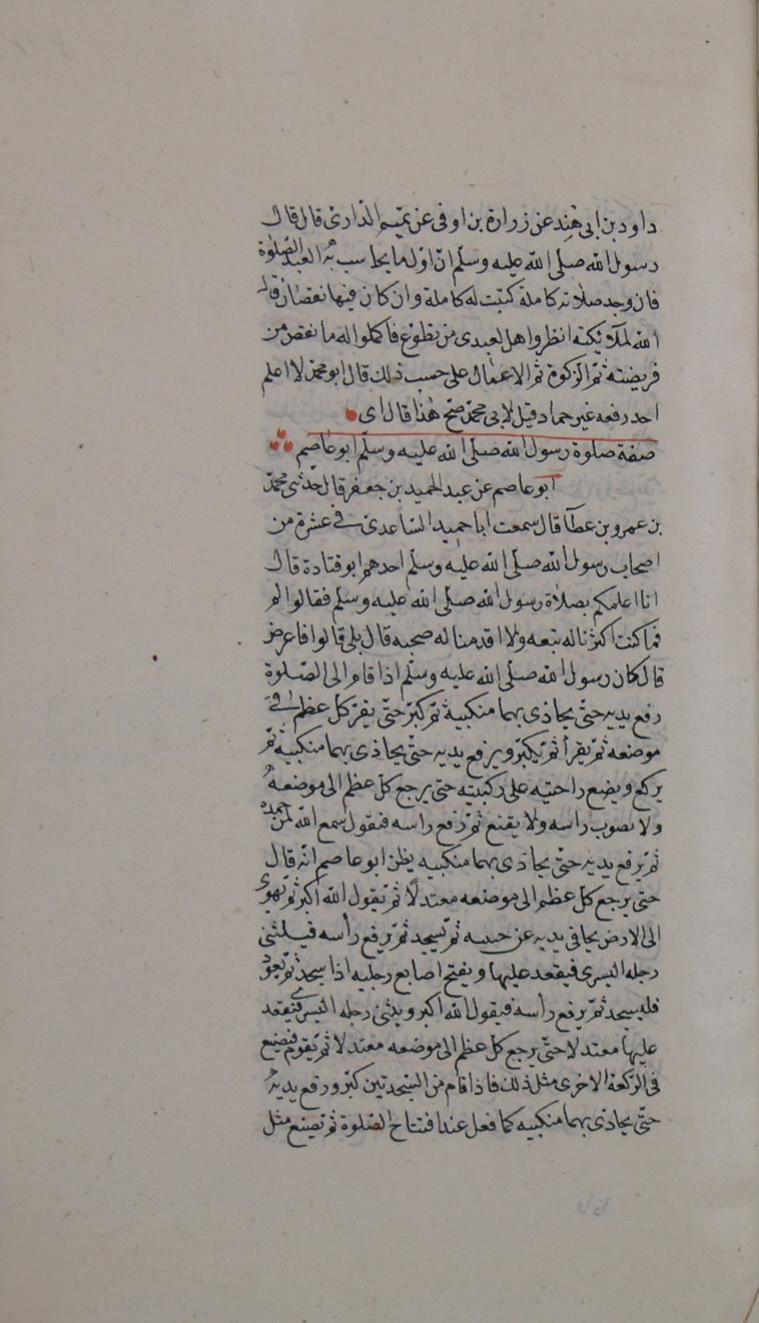 داود بن ابى هِند عن زرارة بن اوفى عن تميم الدّارىّ قال قال
رسول الله صلّى الله عليه وسلّم انّ اوّل ما يحاسب به العبد الصّلوة
فان وجد صلاته كاملة كتبت له كاملة وان كان فيها نقصان قال
الله لملائكته انظروا هل لعبدى من تطوّع فاكملوا له ما نقص من
فريضته ثمّ الزكوة ثمّ الاعمال على حسب ذلك قال ابو محمّد لا اعلم
احد رفعه غير حماد قيل لابى محمّد صحّ هٰذا قال اى
صفة صلوة رسول الله صلّى الله عليه وسلّم ابو عاصم
ابو عاصم عن عبد الحميد بن جعفر قال حدّثنى محمّد
بن عمرو بن عطآ قال سمعت ابا حميد السّاعدىّ فى عشرة من
اصحاب رسول الله صلّى الله عليه وسلّم احدهم ابو قتادة قال
انا اعلمكم بصلاة رسول الله صلّى الله عليه وسلّم فقالوا لم
فما كنت اكثرنا له تبعه ولا اقدمنا له صحبه قال بلى قالوا فاعرض
قال كان رسول الله صلّى الله عليه وسلّم اذا قام الى الصّلوة
رفع يديه حتّى يحاذى بهما منكبيه ثمّ كبّر حتّى يقرّ كلّ عظم فى
موضعه ثمّ يقرأ ثمّ يكبّر ويرفع يديه حتّى يحاذى بهما منكبيه ثمّ
يركع ويضع راحتيه على ركبتيه حتى يرجع كلّ عظم الى موضعه
ولا يصوب راسه ولا يقنع ثمّ رفع راسه فيقول سمع الله لمن حمده
ثمّ يرفع يديه حتّى يحاذى بهما منكبيه يظن ابو عاصم انّه قال
حتى يرجع كلّ عظم الى موضعه معتدلًا ثمّ يقول الله اكبر ثمّ يهوى
الى الارض يجافى يديه عن جنبيه ثمّ يسجد ثمّ يرفع رأسه فيثنى
رجله اليسرى فيقعد عليها ويفتح اصابع رجليه اذا سجد ثمّ يعود
فيسجد ثمّ يرفع رأسه فيقول الله اكبر ويثنى رجله اليسرى فيقعد
عليها معتدلا حتّى يرجع كلّ عظم الى موضعه معتدلا ثمّ يقوم فيصنع
فى الرّكعة الاخرى مثل ذلك فاذا قام من السّجدتين كبّر ورفع يديه
حتّى يحاذى بهما منكبيه كما فعل عند افتتاح الصّلوة ثمّ يصنع مثل